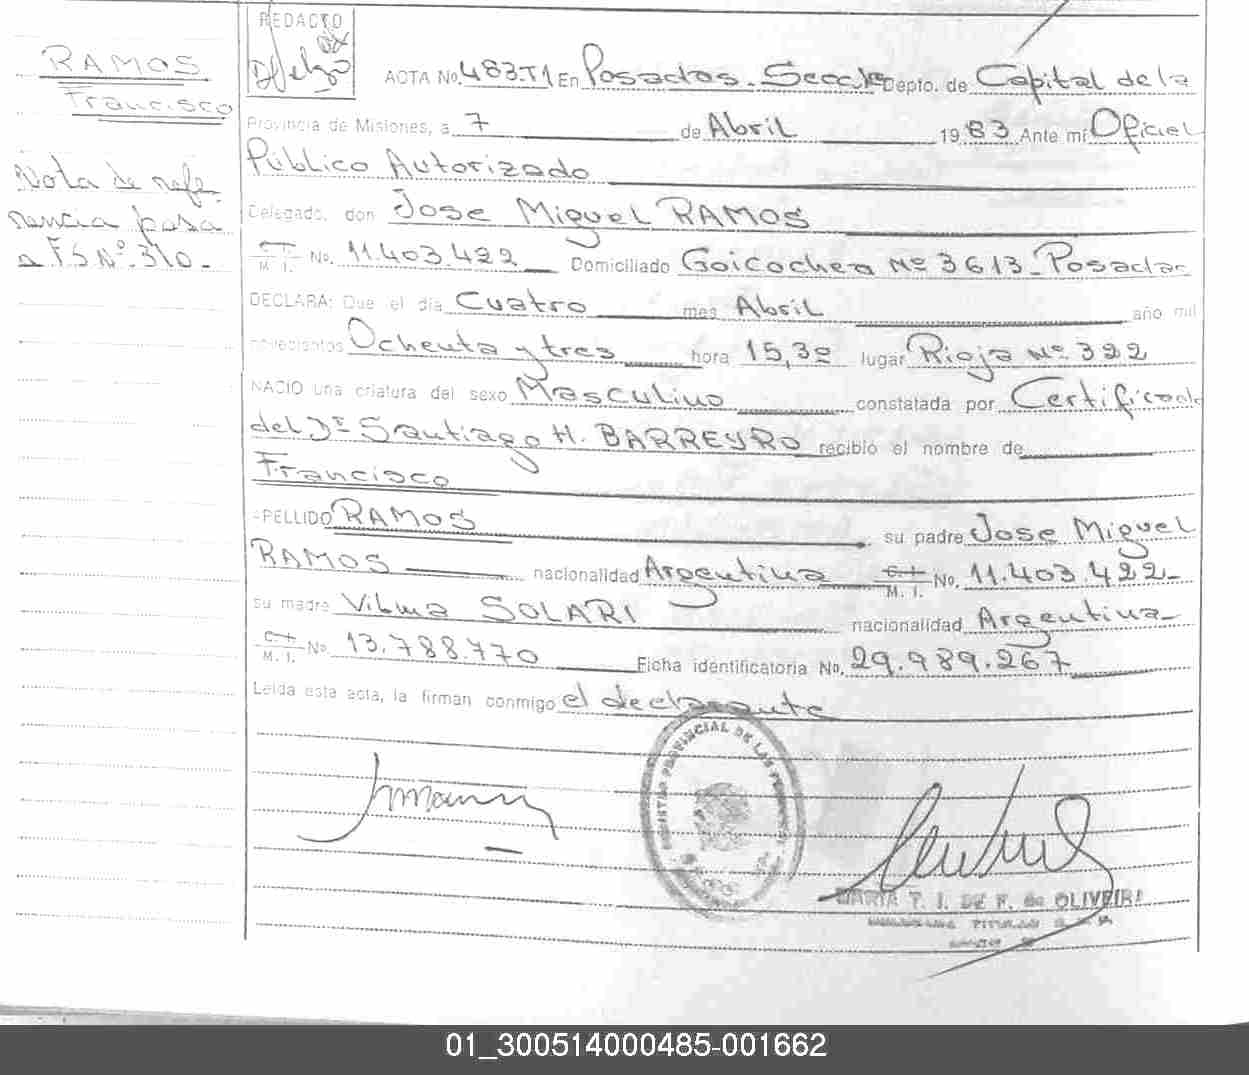 RAMOS
Francisco
Nota de refe-
rencia pasa
a FS Nº 310-
REDACTO
ACTA No. 483.T1 En Posadas. Secc. 1a Depto. de Capital de la
Provincia de Misiones, a 7 de Abril 1983 Ante mí Oficial
Público Autorizado
Delegado, don Jose Miguel RAMOS
M. I. No. 11.403.422 Domiciliado Goicochea Nº 3613-Posadas
DECLARA: Que el día Cuatro mes Abril año mil
novecientos Ochenta y tres hora 15,30 lugar Rioja Nº. 322
NACIO una criatura del sexo Masculino constatada por Certificado
del Dr Santiago H. BARREYRO recibió el nombre de
Francisco
APELLIDO RAMOS su padre Jose Miguel
RAMOS nacionalidad Argentina C. I. M. I. No. 11.403.422-
su madre Vilma SOLARI nacionalidad Argentina-
M. I. No 13.788.770 Ficha identificatoria No. 29.989.267
Leída esta acta, la firman conmigo el declarante
REGISTRO PROVINCIAL DE LAS PERSONAS
MARIA T. I. DE F. de OLIVEIRA
01_300514000485-001662